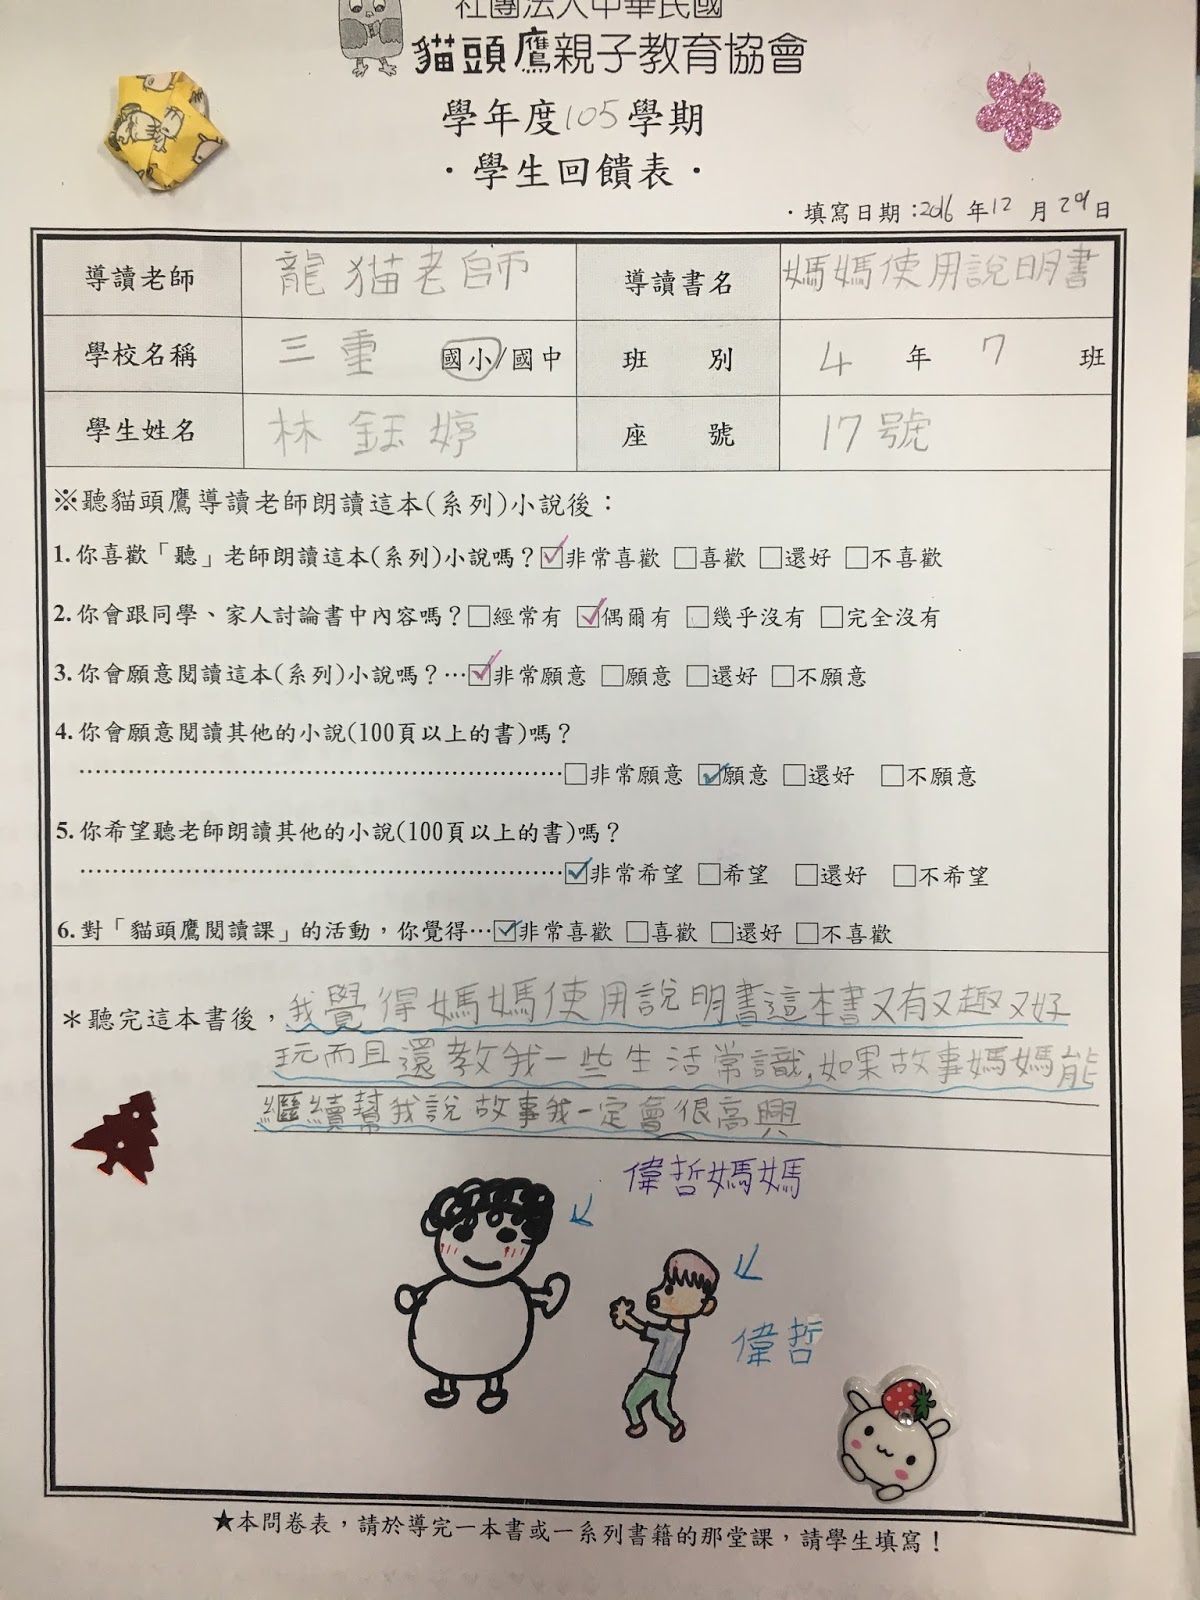 社團法人中華民國
貓頭鷹親子教育協會
學年度105學期
·學生回饋表·
·填寫日期:2016年12月29日
導讀老師 龍貓老師 導讀書名 媽媽使用說明書
學校名稱 三重 國小/國中 班別 4年7班
學生姓名 林鈺婷 座號 17號
※聽貓頭鷹導讀老師朗讀這本(系列)小說後:
1.你喜歡「聽」老師朗讀這本(系列)小說嗎?☑非常喜歡 □喜歡 □還好 □不喜歡
2.你會跟同學、家人討論書中內容嗎?□經常有 ☑偶爾有 □幾乎沒有 □完全沒有
3.你會願意閱讀這本(系列)小說嗎?…☑非常願意 □願意 □還好 □不願意
4.你會願意閱讀其他的小說(100頁以上的書)嗎?
……………………………………………□非常願意 ☑願意 □還好 □不願意
5.你希望聽老師朗讀其他的小說(100頁以上的書)嗎?
……………………………………………☑非常希望 □希望 □還好 □不希望
6.對「貓頭鷹閱讀課」的活動,你覺得…☑非常喜歡 □喜歡 □還好 □不喜歡
*聽完這本書後,我覺得媽媽使用說明書這本書又有又趣又好
玩而且還教我一些生活常識,如果故事媽媽能
繼續幫我說故事我一定會很高興
偉哲媽媽
偉哲
★本問卷表,請於導完一本書或一系列書籍的那堂課,請學生填寫!